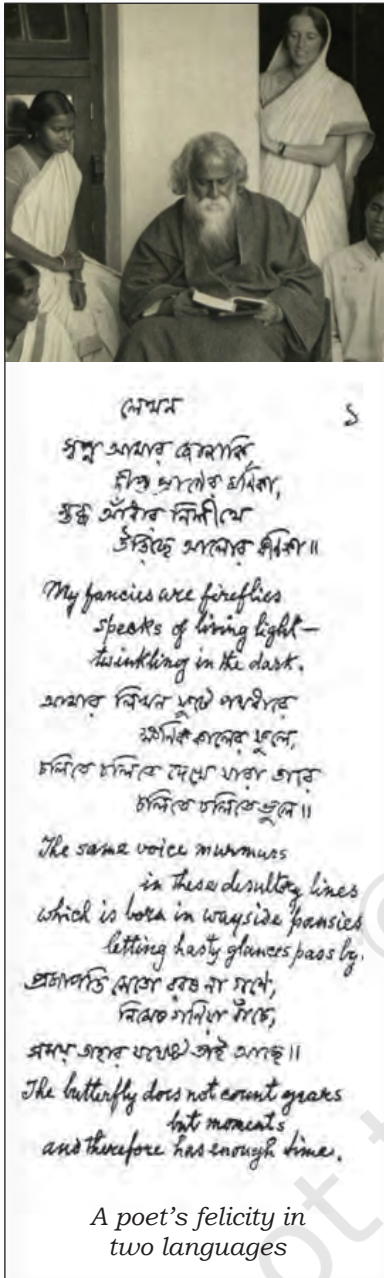 লেখন ১
স্বপ্ন আমার জোনাকি
দীপ্ত প্রাণের মণিকা,
স্তব্ধ আঁধার নিশীথে
উড়িছে আলোর কণিকা॥
My fancies are fireflies
specks of living light—
twinkling in the dark.
আমার লিখন ফুটে পথধারে
ক্ষণিক কালের ফুলে,
চলিতে চলিতে দেখে যারা তারে
চলিতে চলিতে ভুলে॥
The same voice murmurs
in these desultory lines
which is born in wayside pansies
letting hasty glances pass by.
প্রজাপতি সেতো বরষ না গণে,
নিমেষ গণিয়া বাঁচে,
সময় তাহার যথেষ্ট তাই আছে॥
The butterfly does not count years
but moments
and therefore has enough time.
A poet's felicity in
two languages